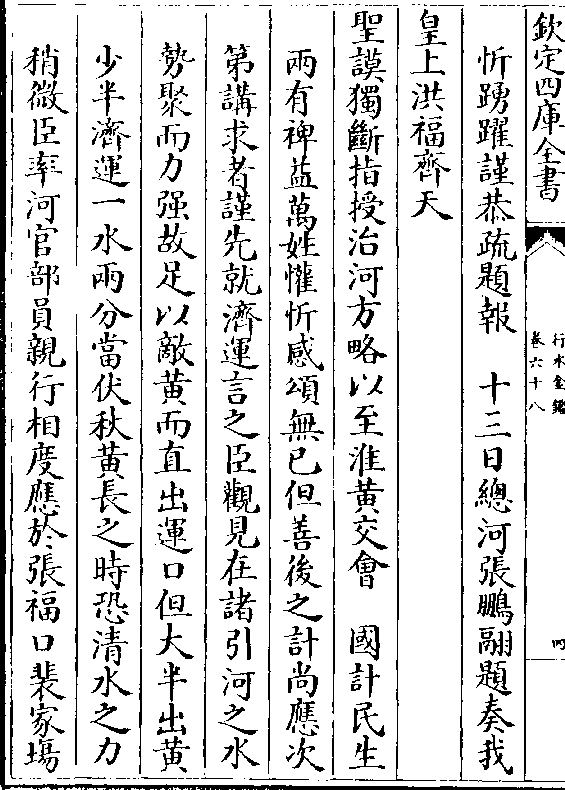 欽定四庫全書
行水金鑑
卷六十八
忻踴躍謹恭疏題報　十三日總河張鵬翮題奏我
皇上洪福齊天
聖謨獨斷指授治河方略以至淮黃交會　國計民生
兩有禆益萬姓懽忻感頌無已但善後之計尚應次
第講求者謹先就濟運言之臣觀見在諸引河之水
勢聚而力强故足以敵黃而直出運口但大半出黃
少半濟運一水兩分當伏秋黃長之時恐清水之力
稍微臣率河官部員親行相度應於張福口裴家塲